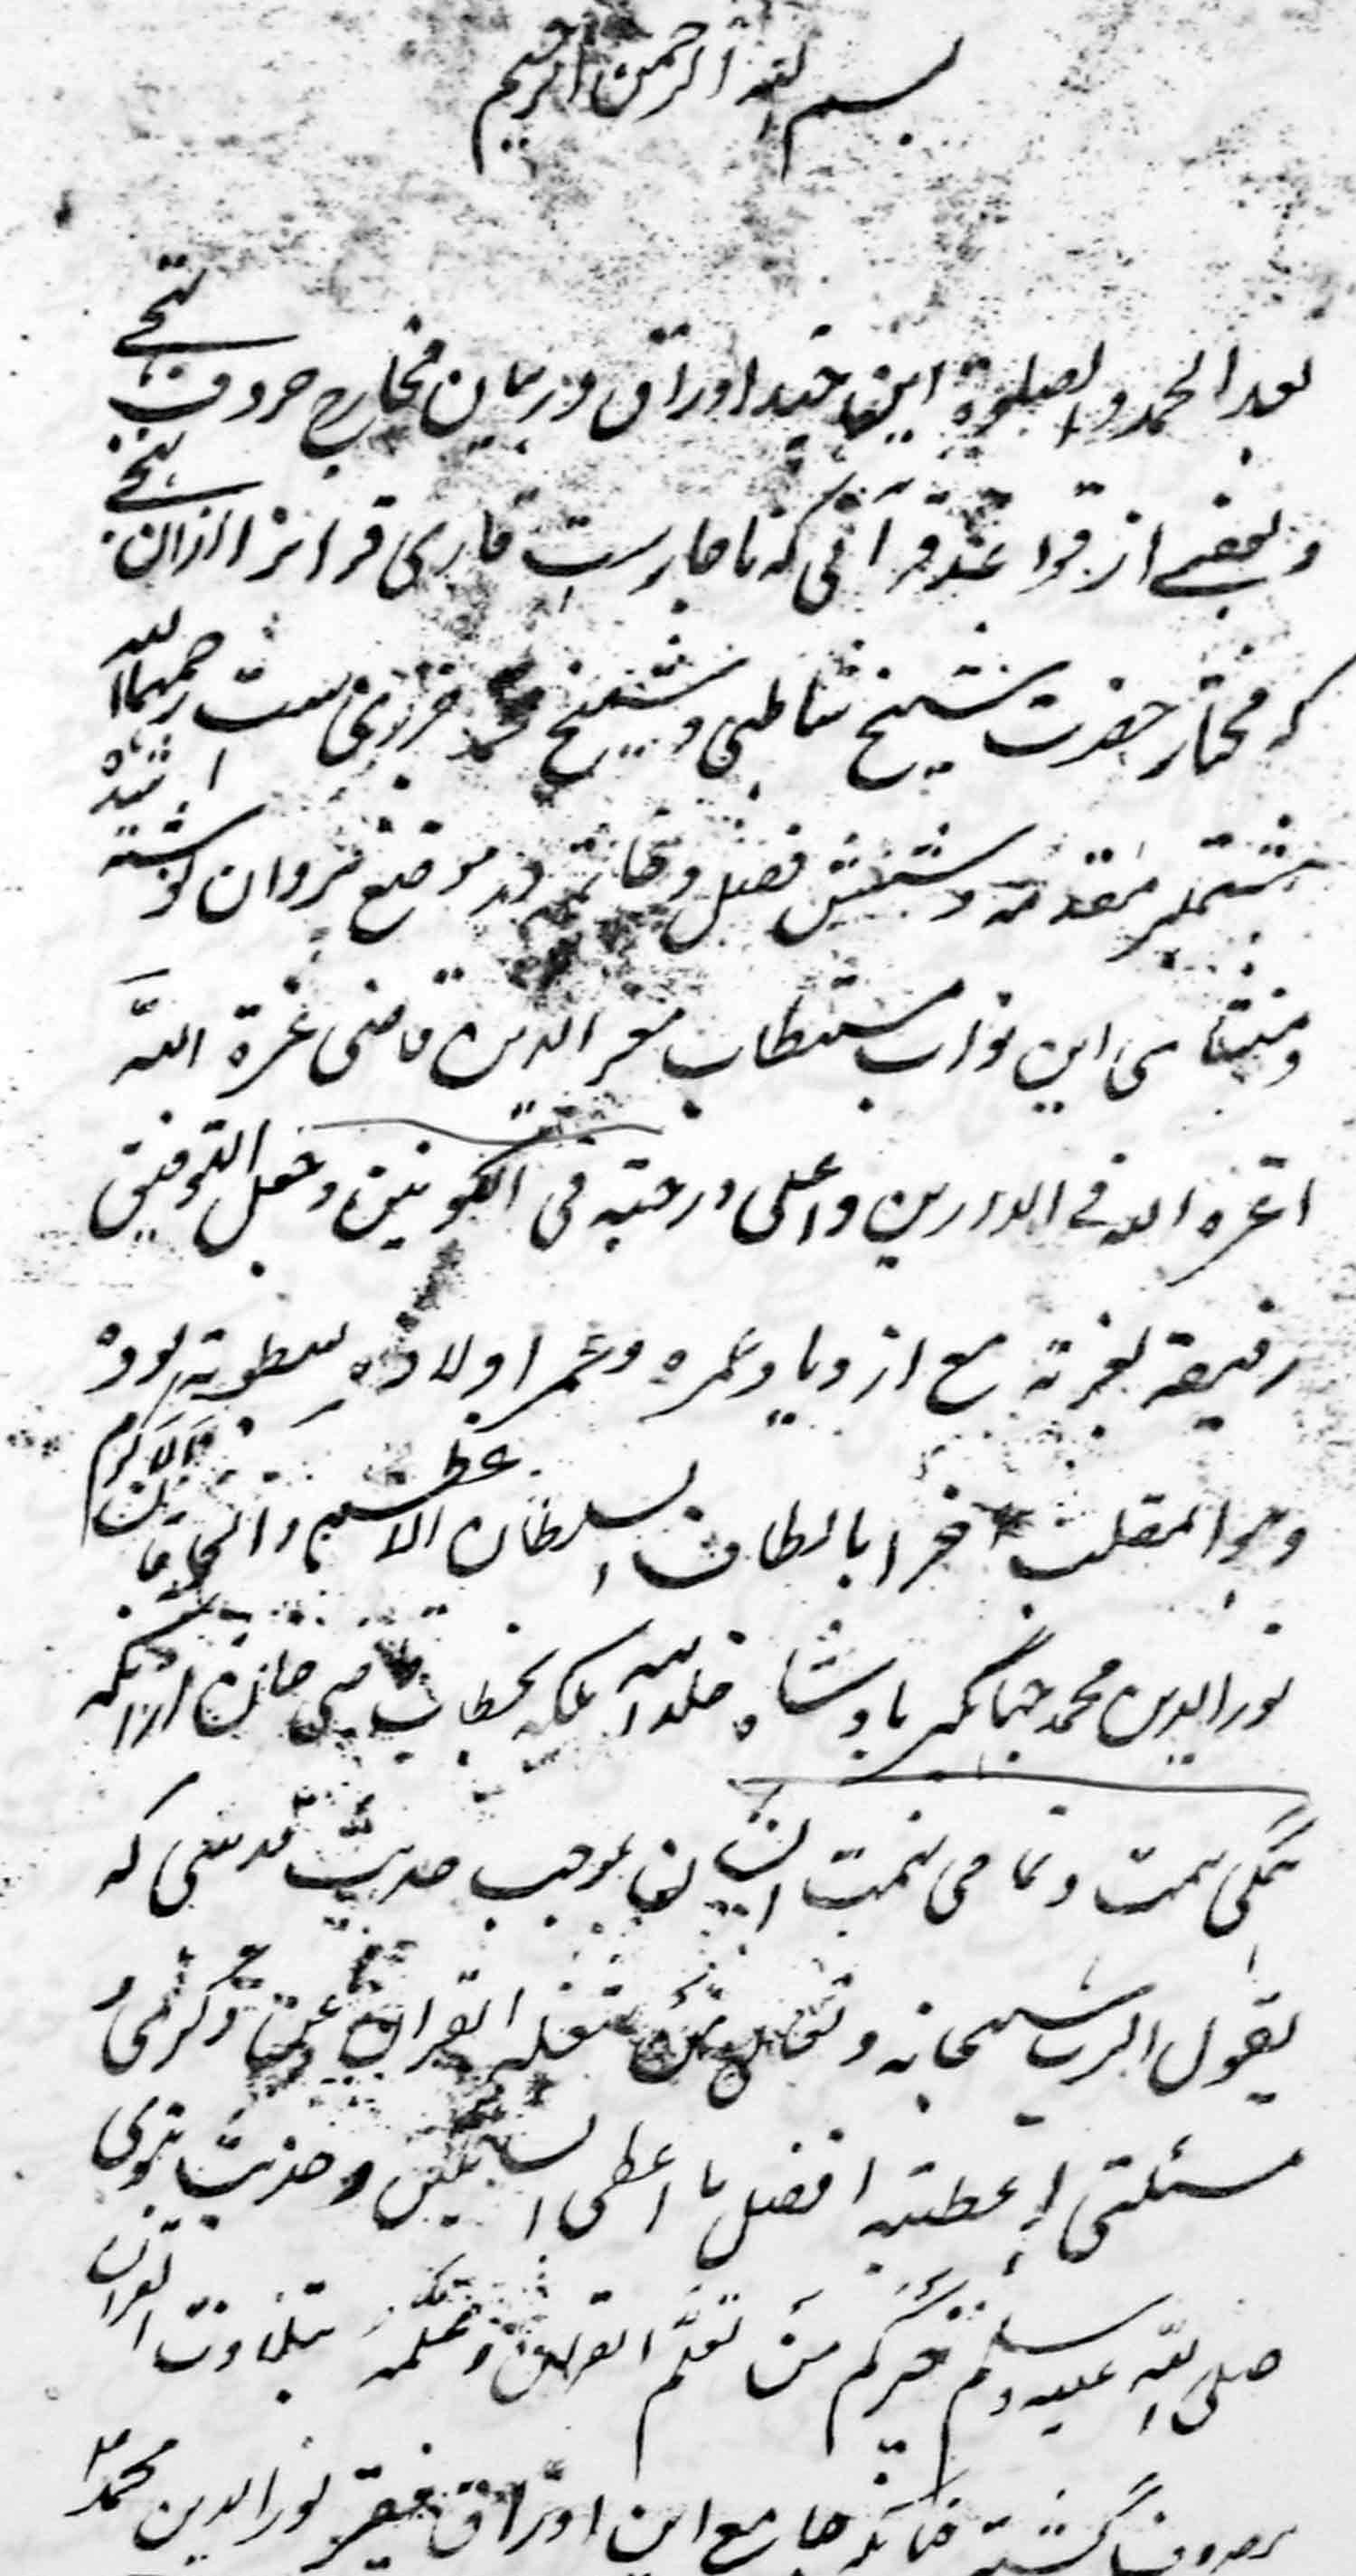 بسم الله الرحمن الرحیم
بعد الحمد والصلوة این چند اوراق در بیان مخارج حروف تهجی
و بعضی از قواعد قرآنی که ناچارست قاری قرآن را از آن
که مختار حضرت شیخ شاطبی و شیخ محمد جزری ست رحمهما الله
مشتمل بر مقدمه و شش فصل و خاتمه در موضع نوشته شده
و منشای این نواب مستطاب معز الدین قاضی عزة الله
اعزه الله فی الدارین واعلی درجته فی الکونین وجعل التوفیق
رفیقه مع ازدیاد عمره وعمر اولاده بوده
وهو الملقب بالطاف السلطان الاعظم والخاقان الاکرم
نورالدین محمد جهانگیر پادشاه خلد الله ملکه بخطاب خان از آنکه
همگی همت و تمامی نهمت ایشان بموجب حدیث قدسی که
یقول الرب سبحانه وتعالی من شغله القرآن عن ذکری و
مسئلتی اعطیته افضل ما اعطی السایلین و حدیث نبوی
صلی الله علیه وسلم خیرکم من تعلم القرآن وعلمه بتلاوت القرآن
مصروف گشته جامع این اوراق فقیر نورالدین محمد